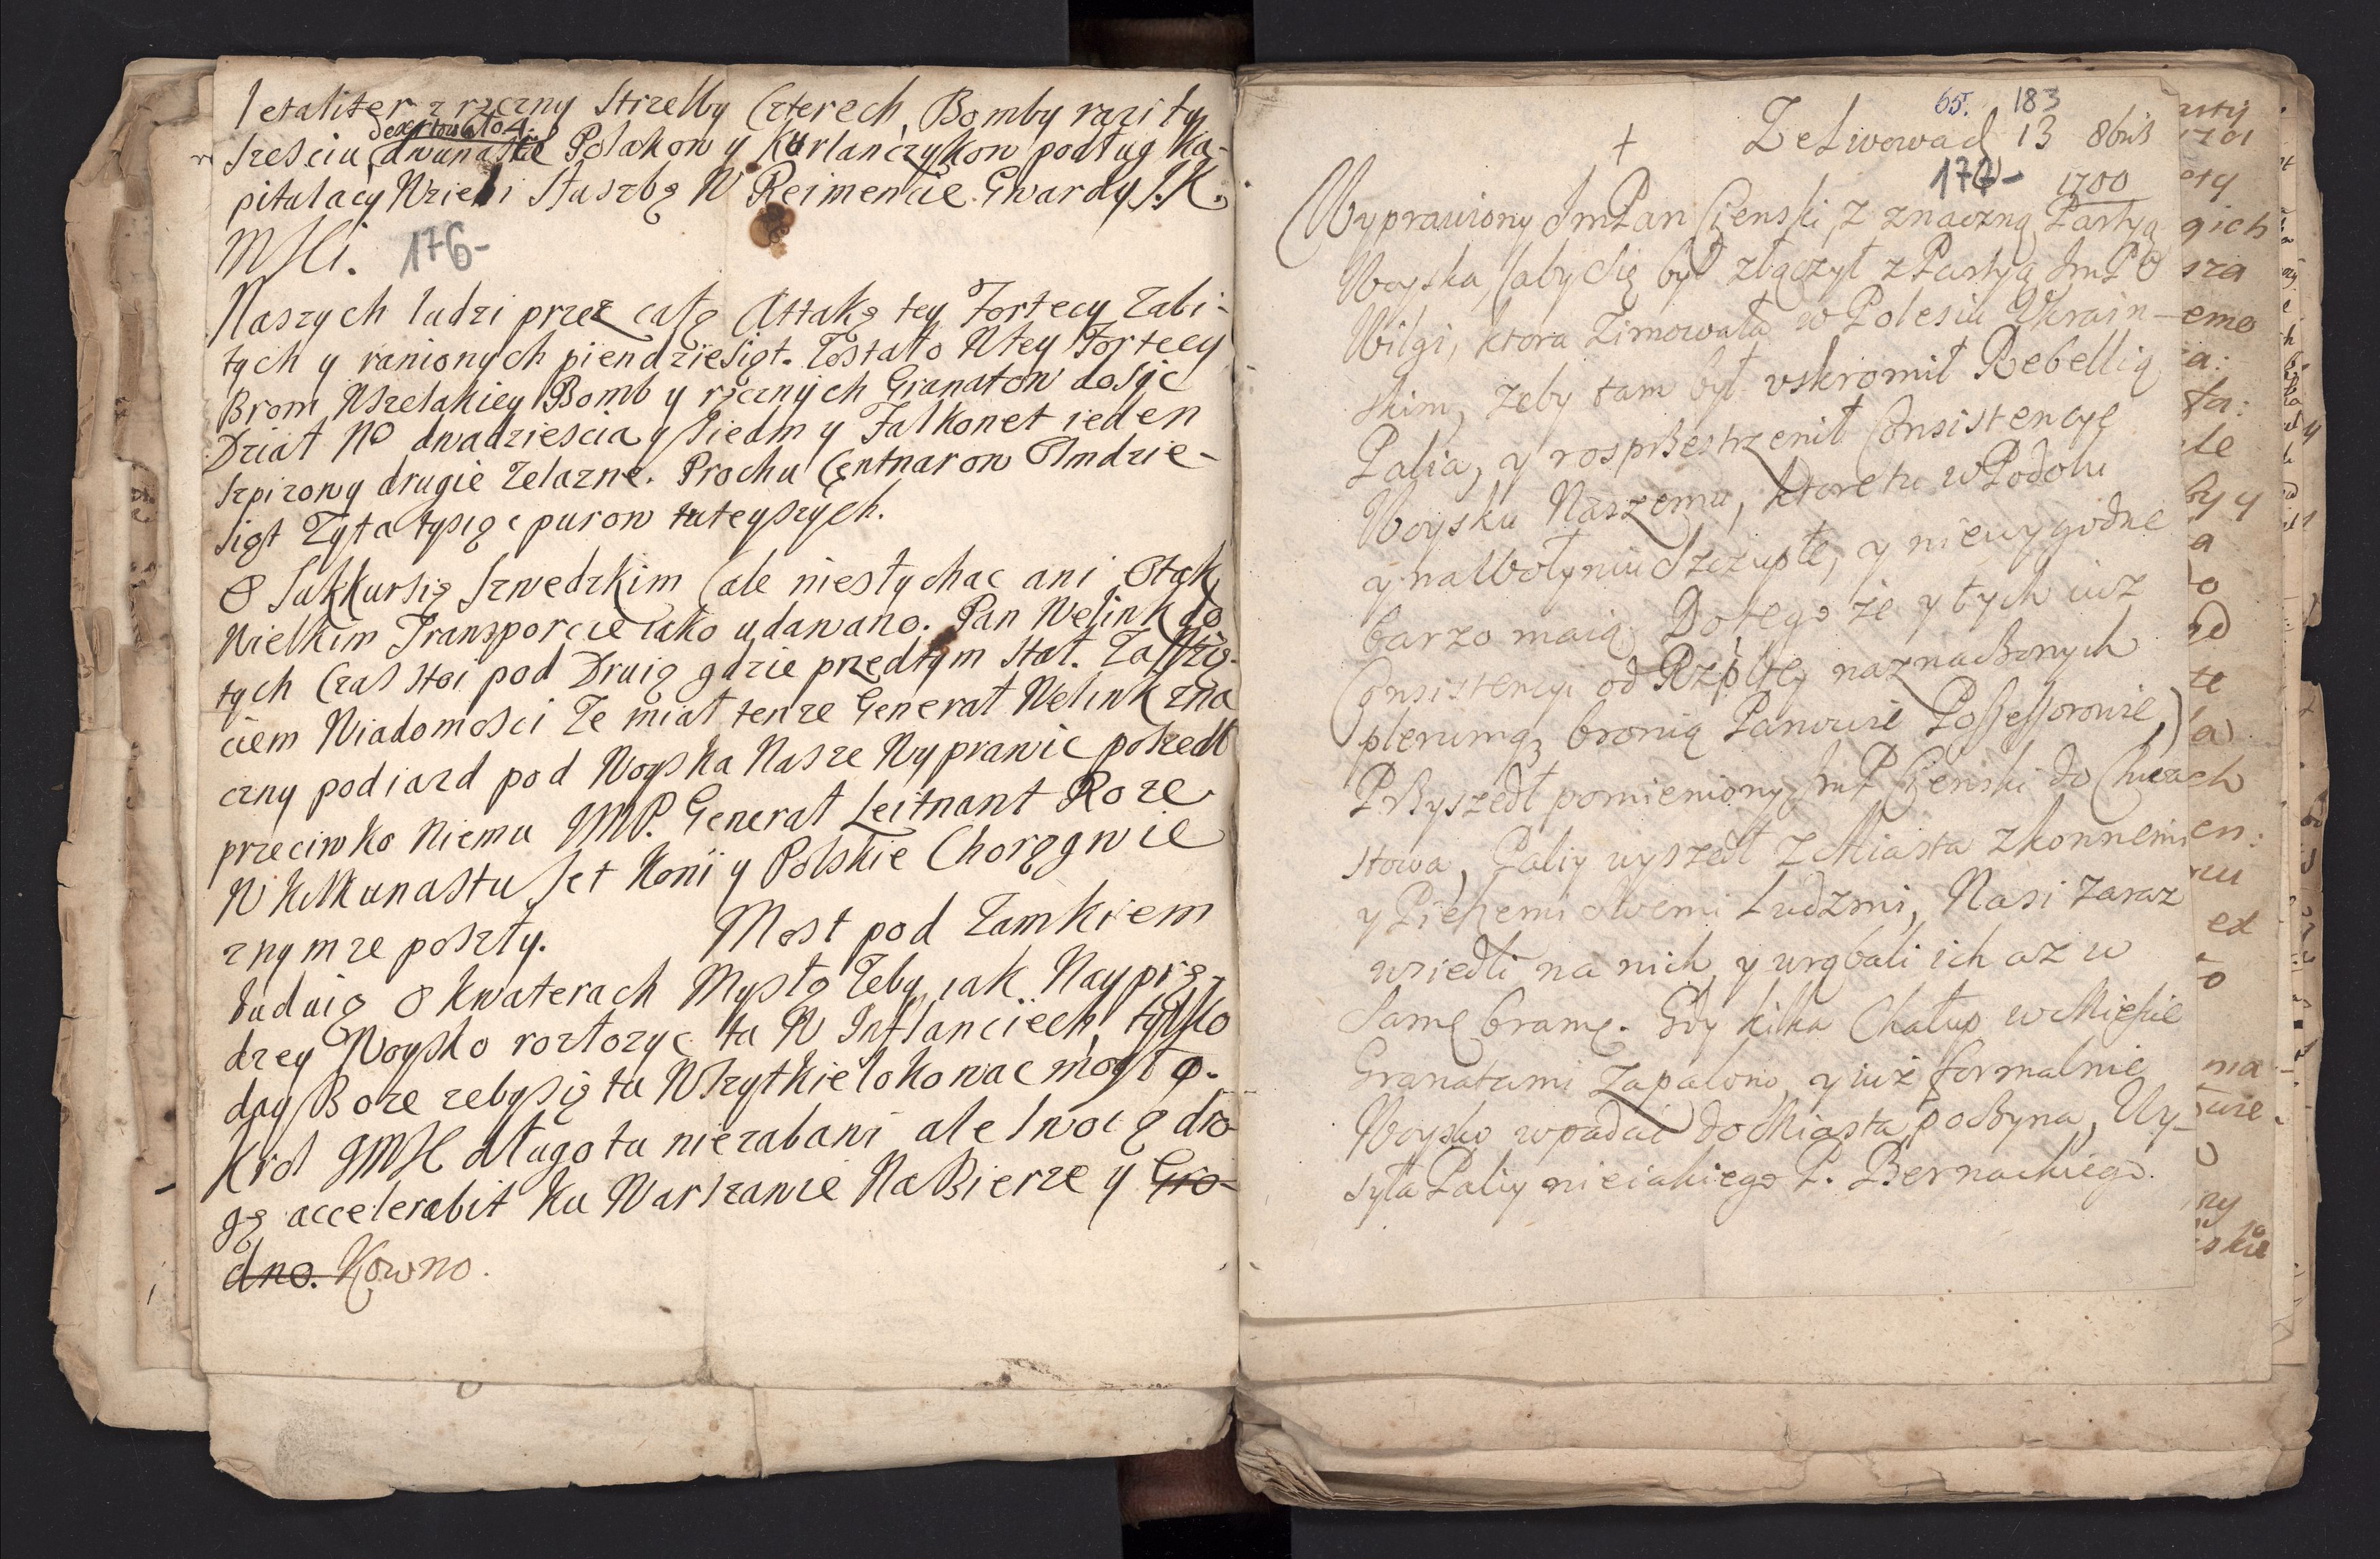 letaliter z ręczny Strzelby Czterech, Bomby raziły
dezertowało 4.
Sześciu dwunastu Polakow y Kurlańczykow podług Ka-
pitulacÿ Wzieli Służbę W Reimencie Gwardÿ J.K.
MSCi. 176-
Naszych ludzi przez całę Attakę tey Fortecy Zabi-
tych y ranionych piendziesiąt. Zostało Wtey Fortecy
Broni Wszelakiey Bomb y ręcznych Granatow dosyc
Dział No dwadziescia y siedm y Falkonet ieden
Szpizowy drugie Zelazne. Prochu Centnarow Osmdzie-
siąt Zyta tysiąc purow tuteyszych.
O Sukkursię Szwedzkim Cale niesłychac ani Otak
Wielkim Transporcie iako udawano. Pan Welink do
tych Czas stoi pod Druię gdzie przedtym stał. Za Wzię-
ciem Wiadomosci Ze miał tenze Generał Welink zna
czny podiazd pod Woyska Nasze Wyprawic poszedł
przeciwko Niemu JMP. Generał Leitnant Roze
W kilkunastu Set Koni y Polskie Chorągwie
znymze poszły. Most pod Zamkiem
buduią O kwaterach Myslą Zeby iak Nayprę-
dzey Woysko rozłozyc tu W Inflanciech, tylko
day Boze zebysię tu Wszytkie lokowac mogło.
Krol JMSC długo tu niezabawi ale Swoię dro
gę accelerabit Ku Warszawie Na Bierze y Gro-
dno. Kowno.
65. 183
+ Ze Lwowa d 13 8bris
177- 1700
Wyprawiony JmPan Cienski, z znaczną Partyą
Woyska, (aby się był złączył z Partyą JmP
Wilgi, ktora Zimowała w Polesiu Ukrain-
skim, zeby tam był uskromił Rebellią
Palia, y rosprzestrzenił Consistencye
Woysku Naszemu, ktore tu w Podolu
y na Wołyniu Szczupłe, y niewygodne
barzo maią. Dotego ze y tych iuz
Consistencyi od Rzpltey naznaczonych
plerumq; bronią Panowie Possessorowie,)
Przyszedł pomieniony JmP Cienski do Chwa
stowa, Paliy wyszedł z Miasta zkonnemi
y Pieszemi swemi Ludzmi, Nasi zaraz
wsiedli na nich y wrąbali ich az w
Samę bramę. Gdy kilka Chałup w Miescie
Granatami Zapalono, y iuz formalnie
Woysko wpadac do Miasta poczyna, Wy-
syła Paliy nieiakiego P. Bernackiego.